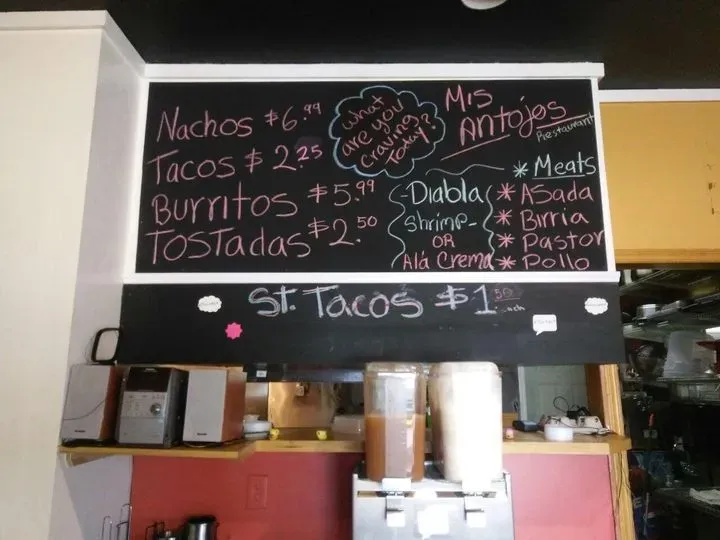 Nachos $6.99
Tacos $2.25
Burritos $5.99
Tostadas $2.50
What
are you
craving
Today?
Mis
Antojos
Restaurant
-Diabla
Shrimp-
OR
Alá Crema
* Meats
* ASada
* Birria
* Pastor
* Pollo
St. Tacos $1.50